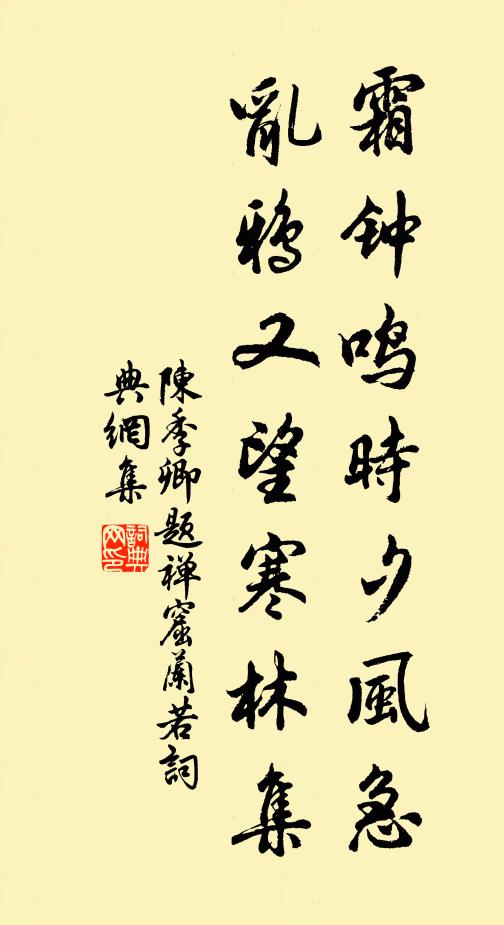 霜钟鸣時夕風急
亂鴉又望寒林集
陳季卿题禅窟蘭若詞
典網集
詞典
网印